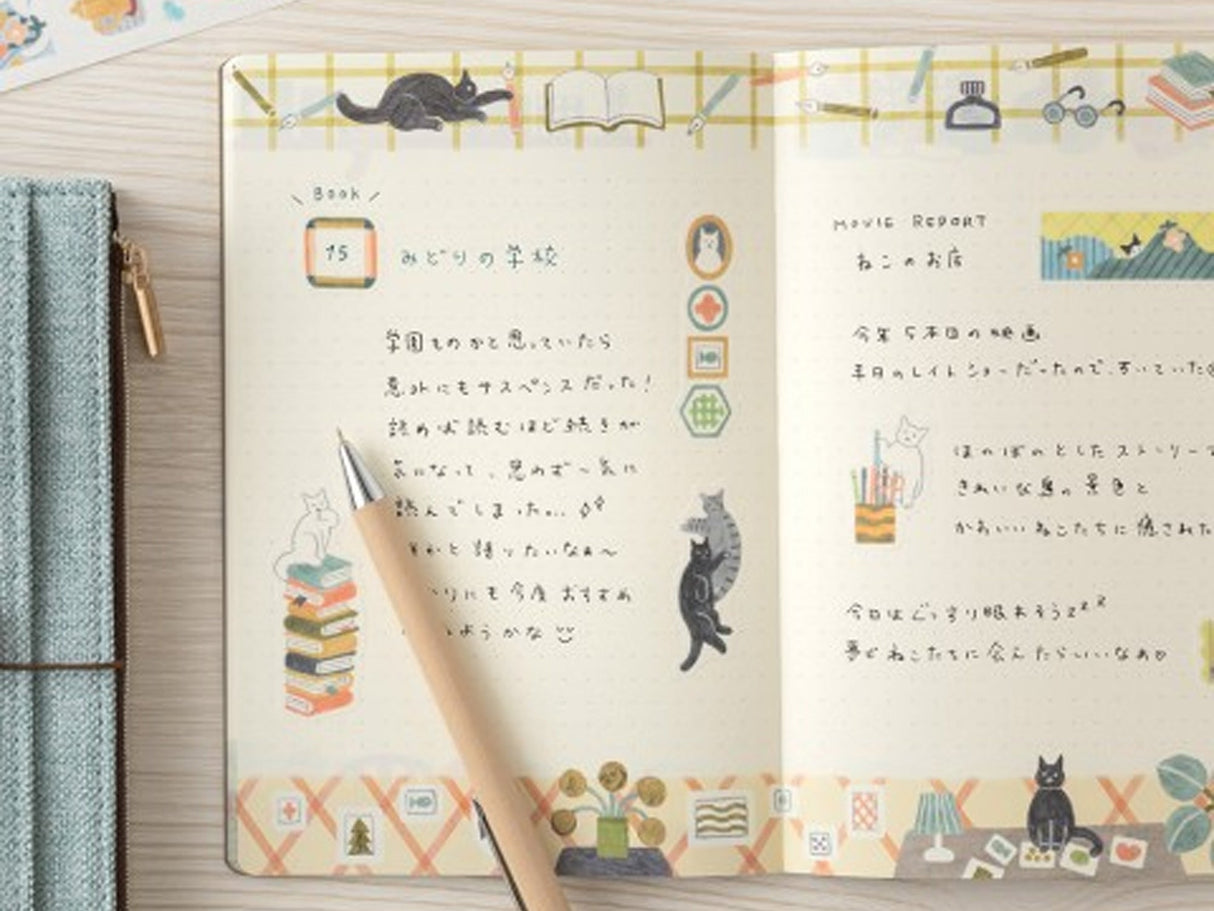 Book
15 みどりの学校
学園ものかと思っていたら
意外にもサスペンスだった!
読めば読むほど続きが
気になって、思わず一気に
読んでしまった...
と語りたいなぁ〜
にも今度おすすめ
ようかな
MOVIE REPORT
ねこのお店
今年5本目の映画
平日のレイトショーだったので、すいていた
ほのぼのとしたストーリーで
きれいな島の景色と
かわいいねこたちに癒された
今日はぐっすり眠れそうzzz
夢でねこたちに会えたらいいなぁ